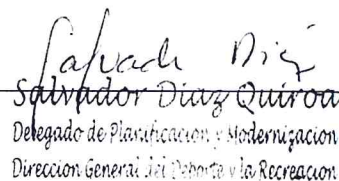 Salvador Díaz
Salvador Diaz Quiroa
Delegado de Planificacion y Modernizacion
Direccion General del Deporte y la Recreacion